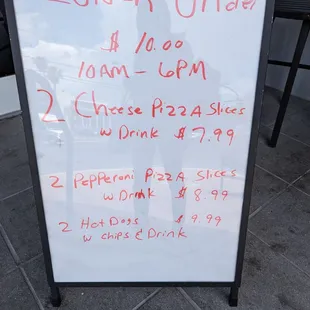 Under
$ 10.00
10AM - 6PM
2 Cheese Pizza Slices
w Drink $ 7.99
2 Pepperoni Pizza Slices
w Drink $ 8.99
2 Hot Dogs $ 9.99
w chips & Drink